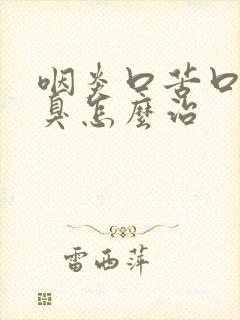 咽炎口苦口
臭怎麽治
雷西萍